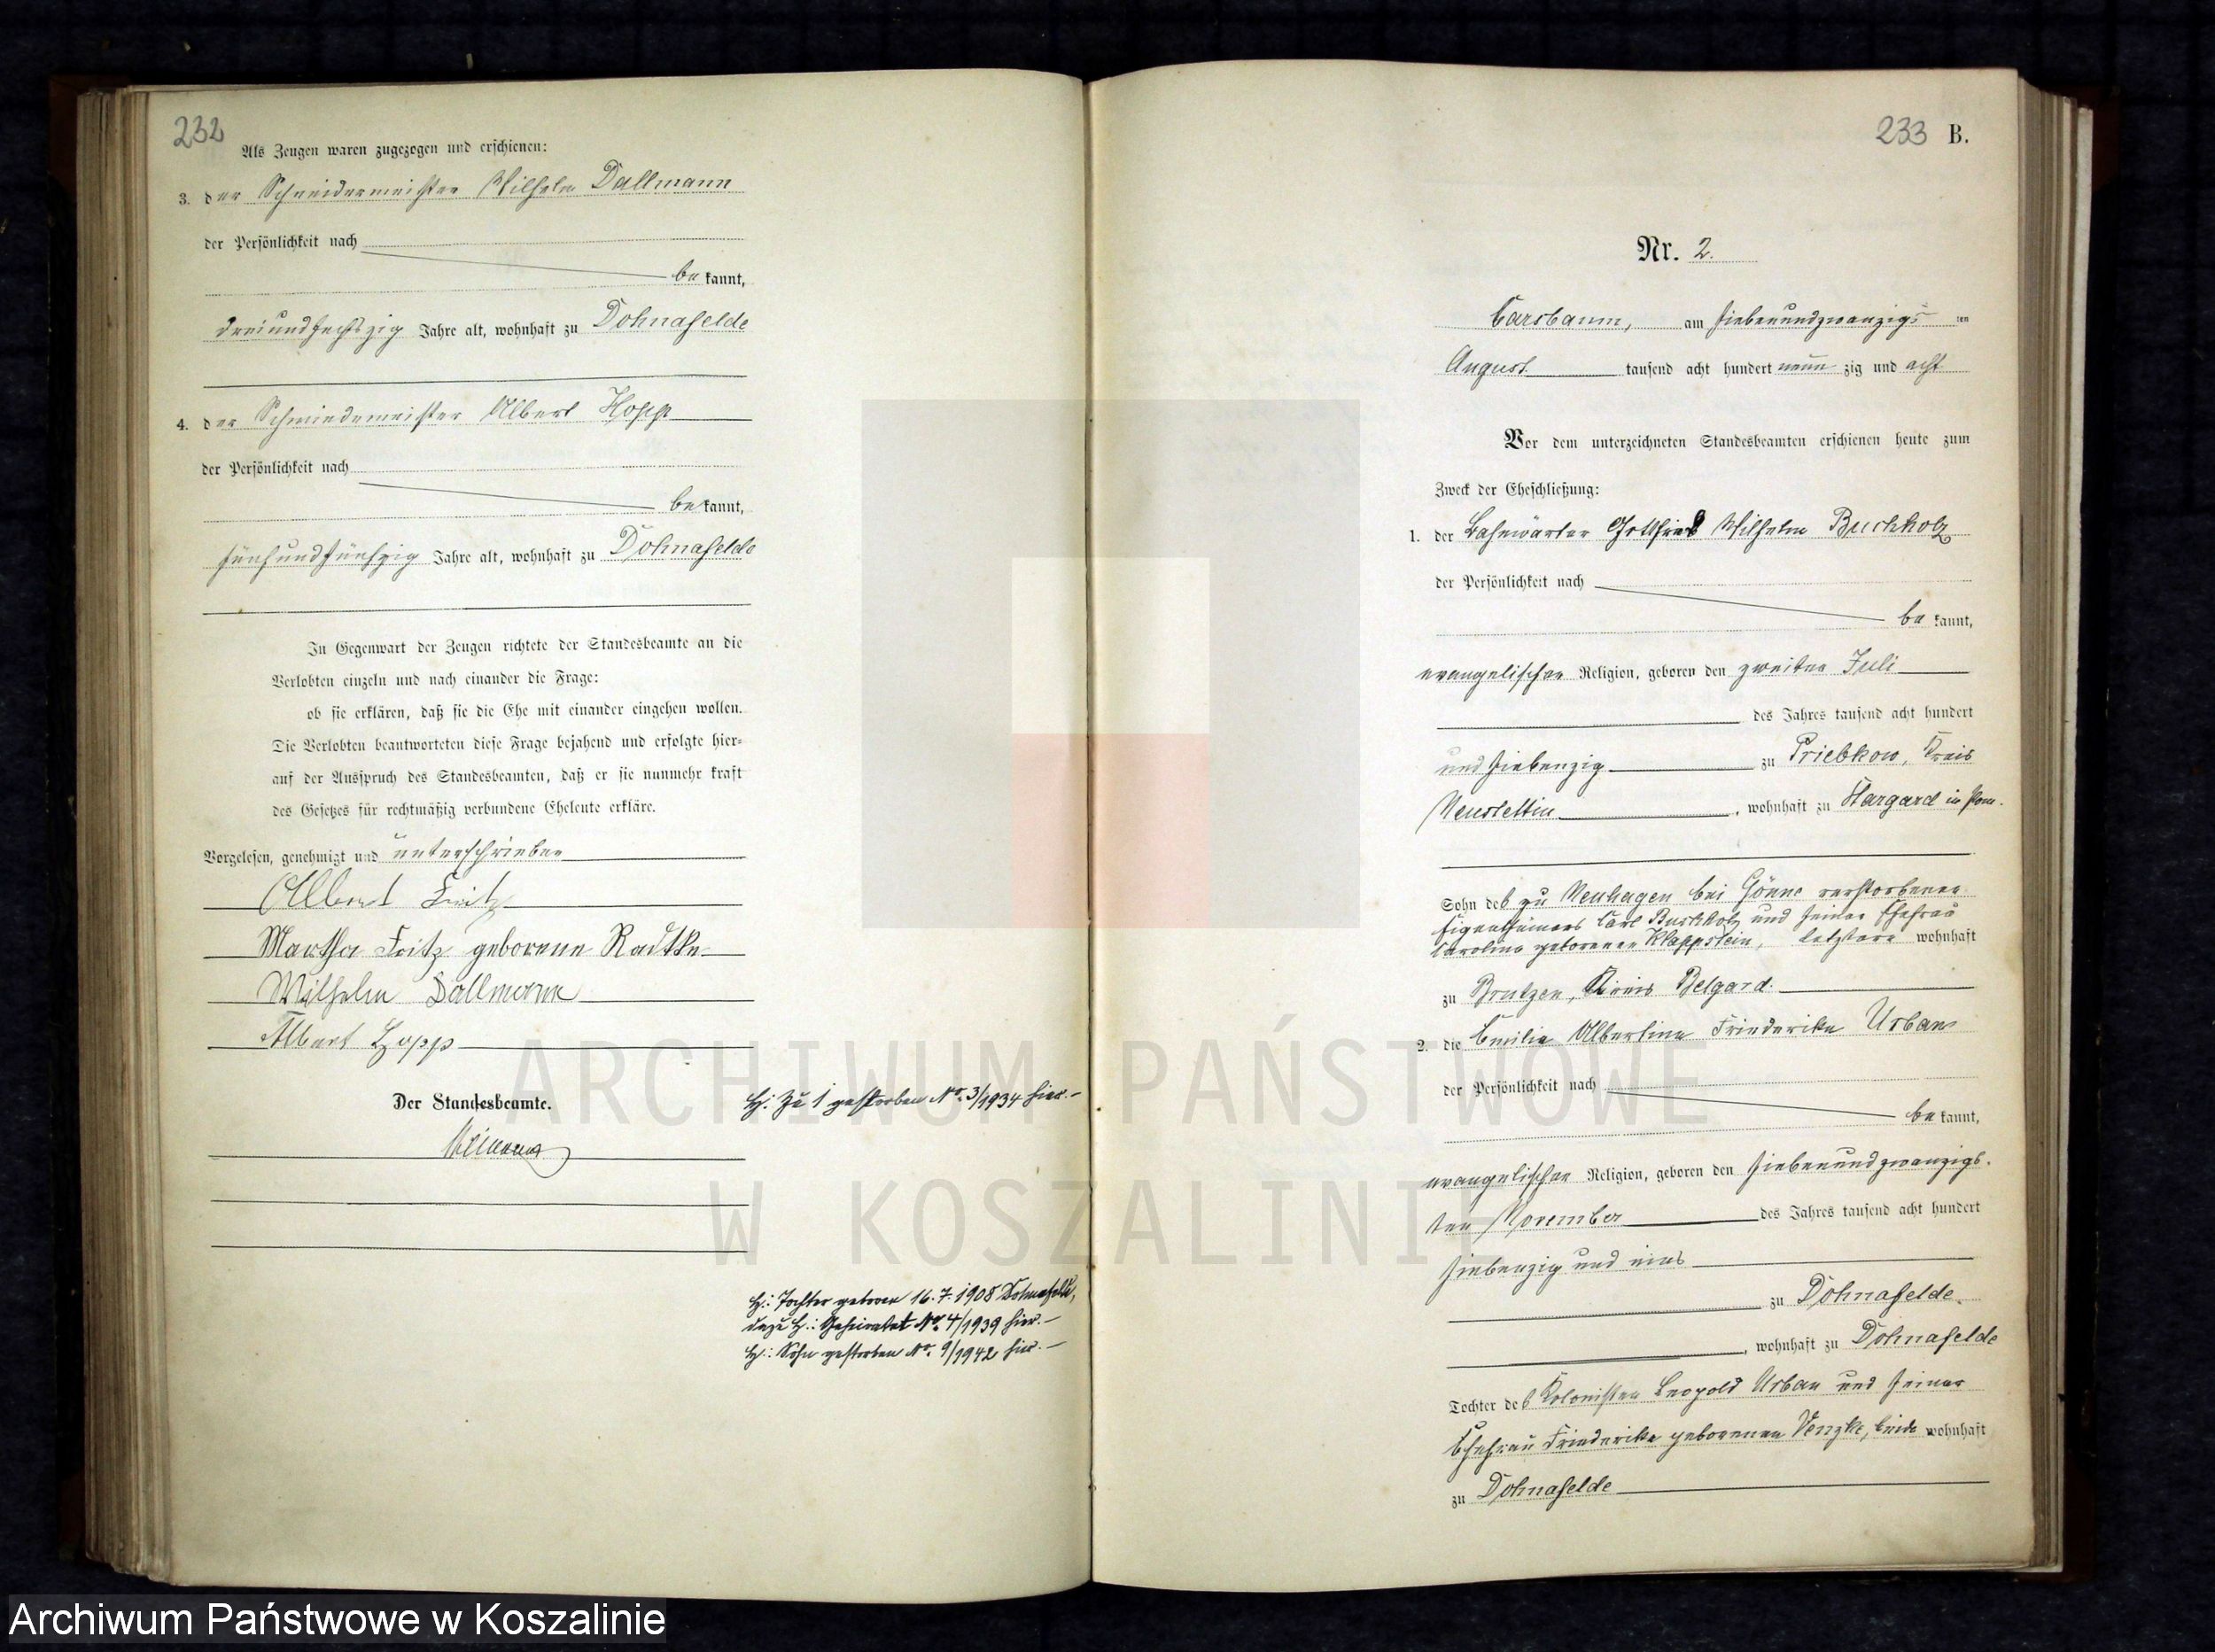 232
Als Zeugen waren zugezogen und erschienen:
3. der Schneidermeister Wilhelm Dallmann
der Persönlichkeit nach
be kannt,
dreiundsechszig Jahre alt, wohnhaft zu Dohnafelde
4. der Schmiedemeister Albert Hopp
der Persönlichkeit nach
be kannt,
fünfundfünfzig Jahre alt, wohnhaft zu Dohnafelde
In Gegenwart der Zeugen richtete der Standesbeamte an die
Verlobten einzeln und nach einander die Frage:
ob sie erklären, daß sie die Ehe mit einander eingehen wollen.
Die Verlobten beantworteten diese Frage bejahend und erfolgte hier-
auf der Ausspruch des Standesbeamten, daß er sie nunmehr kraft
des Gesetzes für rechtmäßig verbundene Eheleute erkläre.
Vorgelesen, genehmigt und unterschrieben
Albert Fritz
Martha Fritz geborene Radtke
Wilhelm Dallmann
Albert Hopp
Der Standesbeamte.
H. Zu 1 gestorben No. 3/1934 hier.-
H.: Tochter geboren 16.7.1908 Dohnafelde,
dazu H.: Geheiratet No. 4/1939 hier.-
H.: Sohn gestorben No. 9/1942 hier.-
233 B.
Nr. 2.
Carsbaum, am siebenundzwanzigs ten
August tausend acht hundert neun zig und acht
Vor dem unterzeichneten Standesbeamten erschienen heute zum
Zweck der Eheschließung:
1. der Bahnwärter Gottfried Wilhelm Buchholz
der Persönlichkeit nach
be kannt,
evangelischer Religion, geboren den zweiten Juli
des Jahres tausend acht hundert
und siebenzig zu Priebkow, Kreis
Neustettin, wohnhaft zu Stargard in Pom.
Sohn des zu Neuhagen bei Gönne verstorbenen
Eigenthümers Carl Buchholz und seiner Ehefrau
Caroline geborenen Klappstein, letztere wohnhaft
zu Brutzen, Kreis Belgard.
2. die Emilie Albertine Friederike Urban
der Persönlichkeit nach
be kannt,
evangelischer Religion, geboren den siebenundzwanzigs-
ten November des Jahres tausend acht hundert
siebenzig und eins
zu Dohnafelde
, wohnhaft zu Dohnafelde
Tochter des Kolonisten Leopold Urban und seiner
Ehefrau Friederike geborenen Venzke, beide wohnhaft
zu Dohnafelde
ARCHIWUM PAŃSTWOWE
W KOSZALINIE
Archiwum Państwowe w Koszalinie